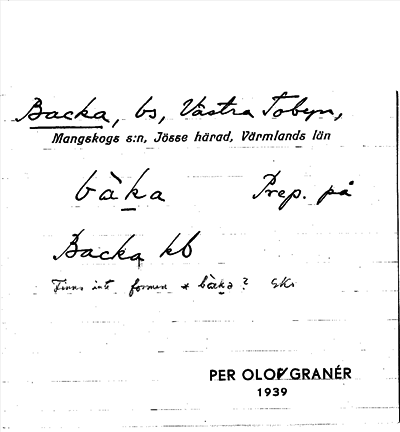 Backa, bs, Västra Tobyn,
Mangskogs s:n, Jösse härad, Värmlands län
bàka Prep. på
Backa kb
Finns inte formen * bàka? GKs
PER OLOF GRANÉR
1939